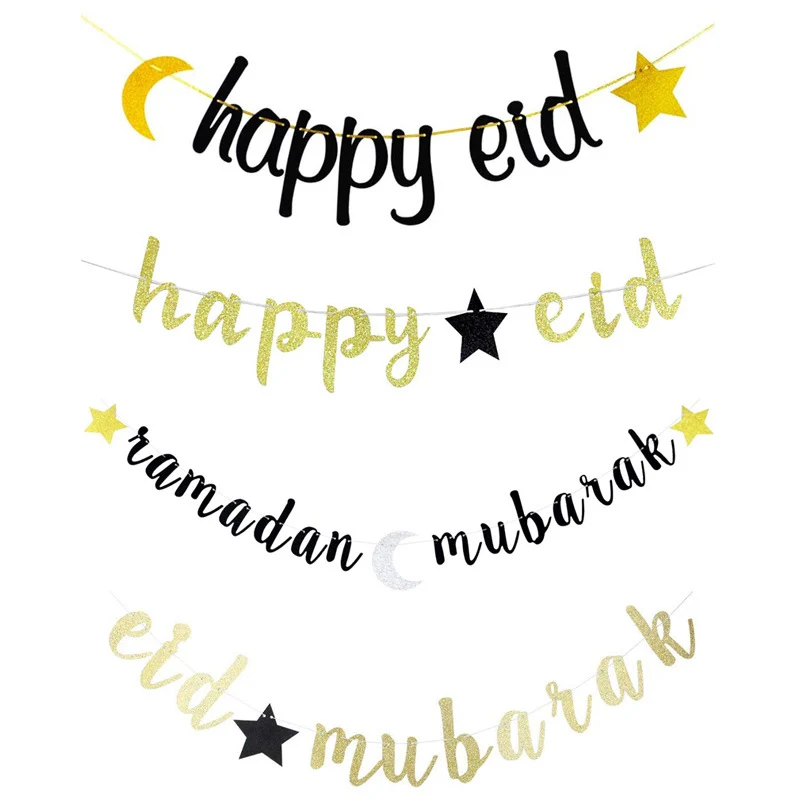 happy eid
happy eid
ramadan mubarak
eid mubarak